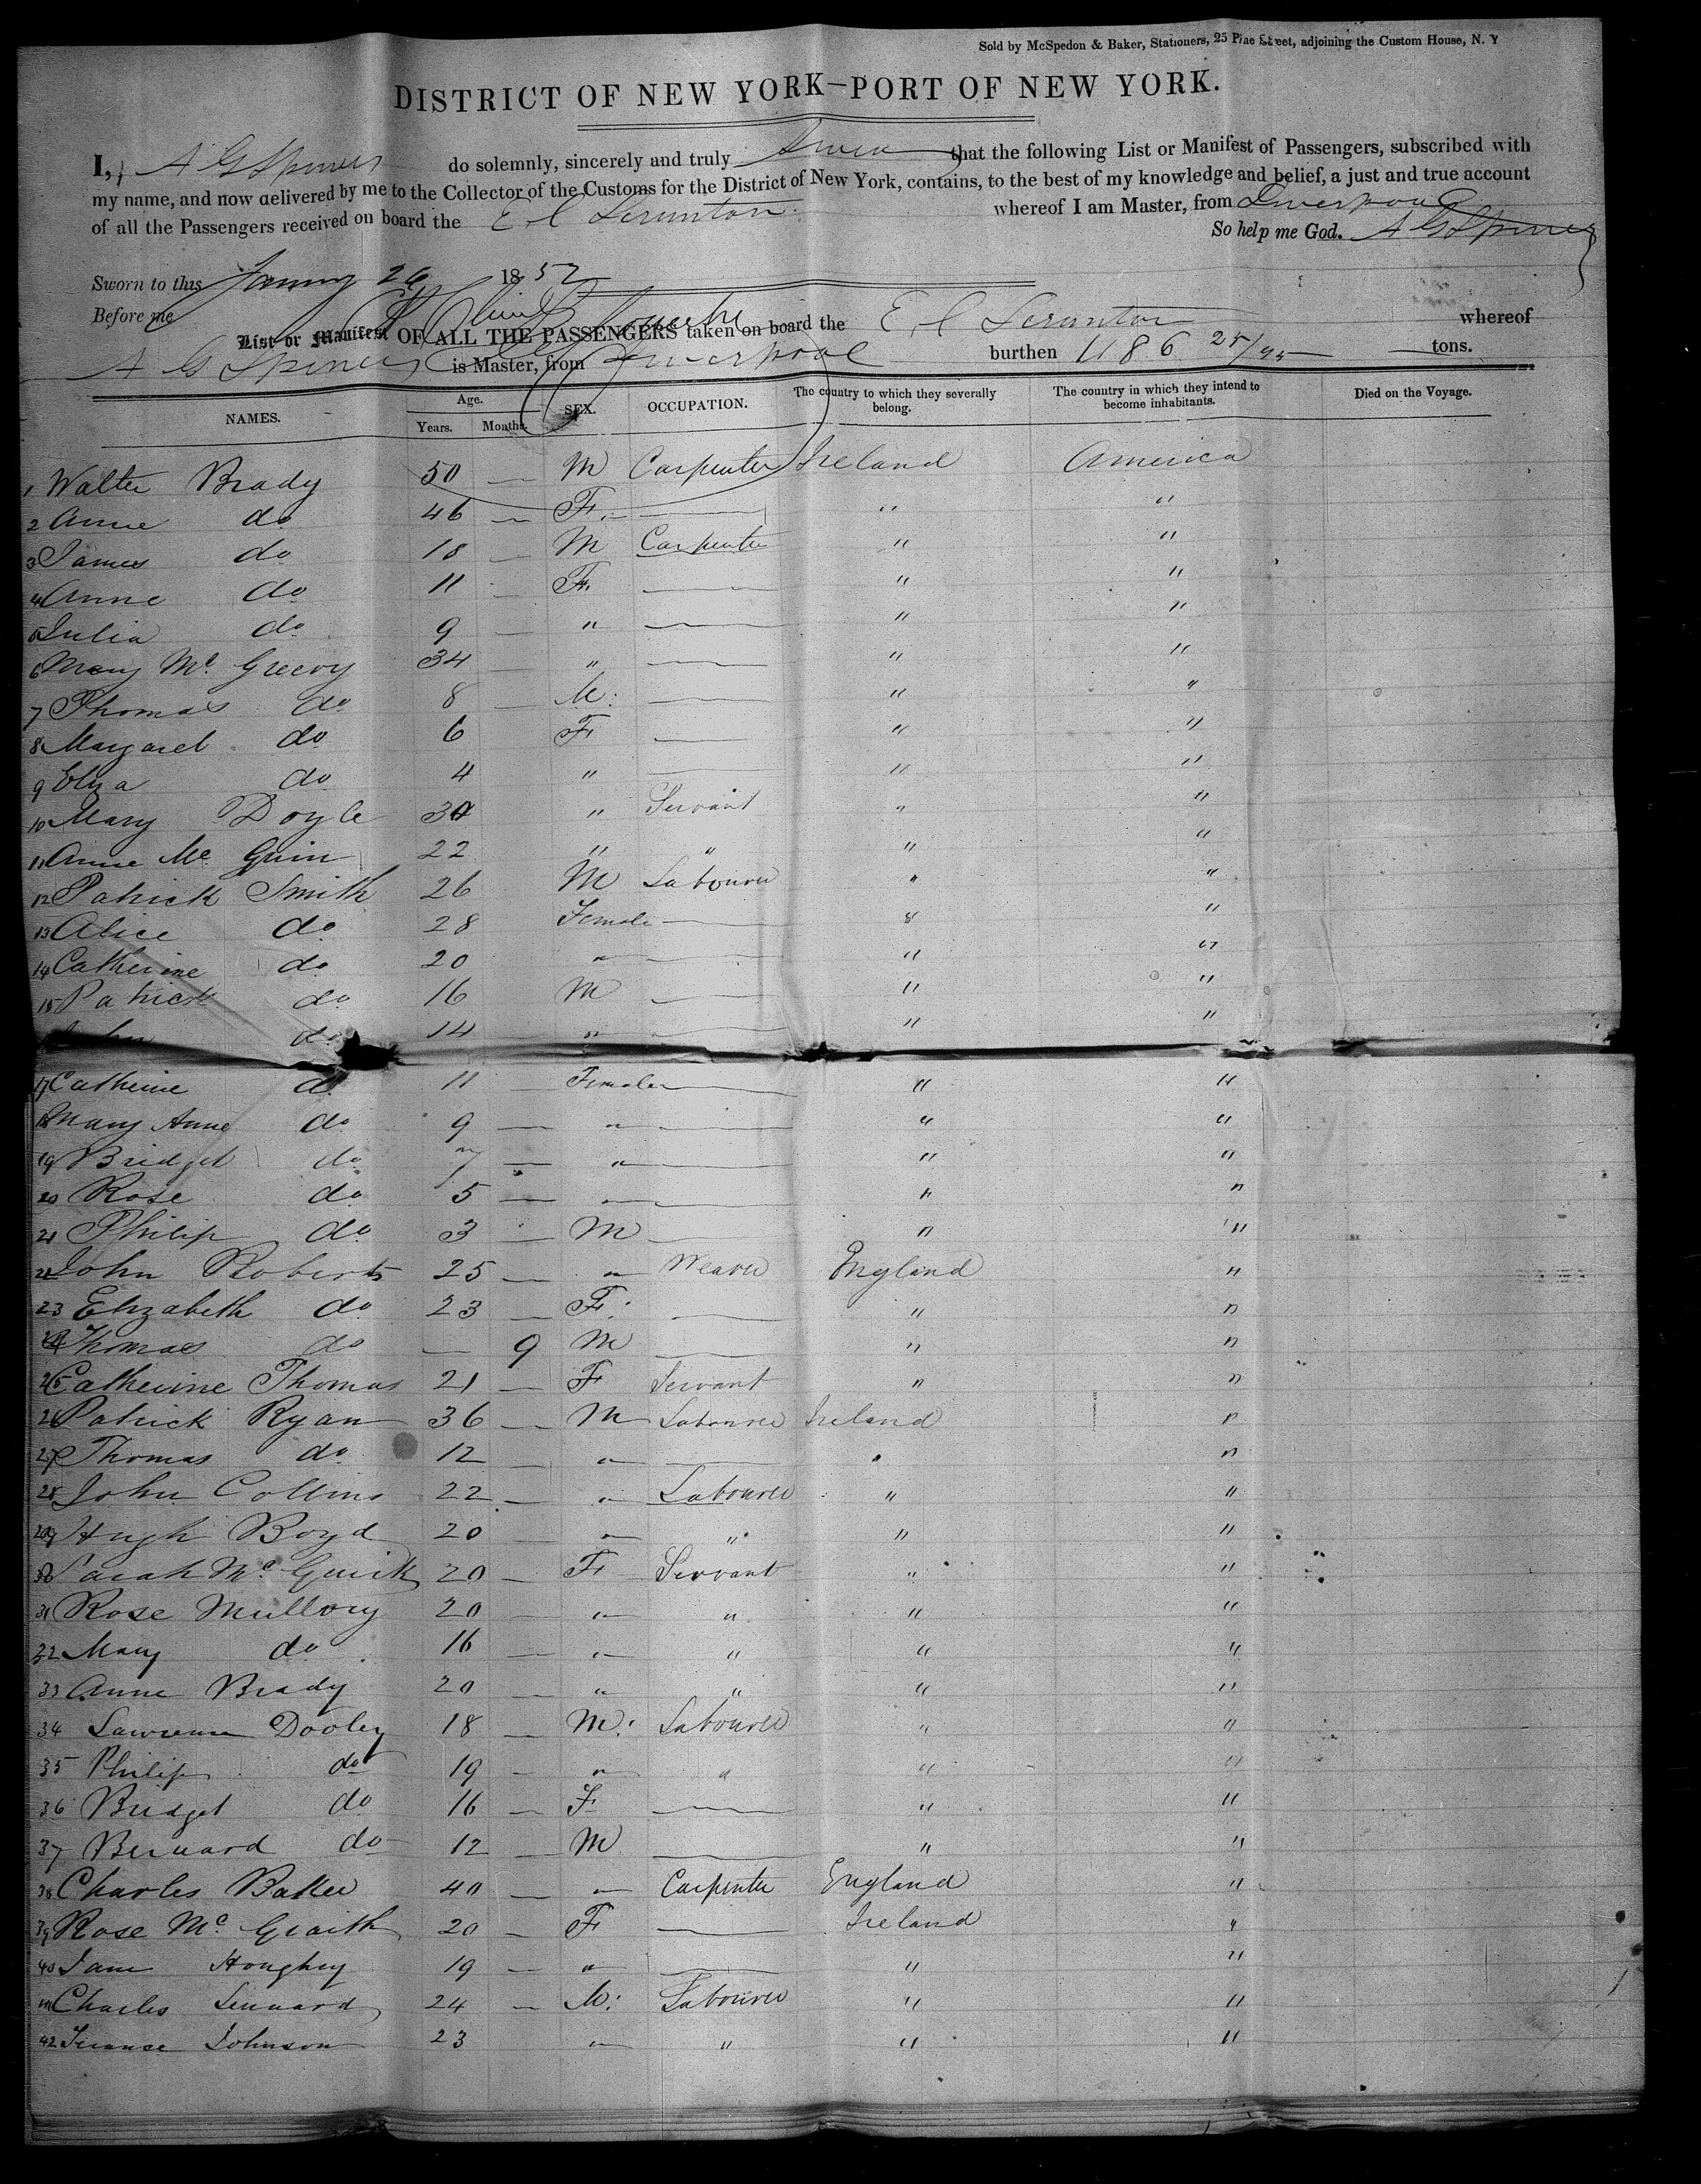 Sold by McSpedon & Baker, Stationers, 25 Pine Street, adjoining the Custom House, N. Y
DISTRICT OF NEW YORK—PORT OF NEW YORK.
I, A G Spencer do solemnly, sincerely and truly Swear that the following List or Manifest of Passengers, subscribed with
my name, and now delivered by me to the Collector of the Customs for the District of New York, contains, to the best of my knowledge and belief, a just and true account
of all the Passengers received on board the E. C Scranton whereof I am Master, from Liverpool
So help me God. A G Spencer
Sworn to this 26 1852
Before me
List or Manifest OF ALL THE PASSENGERS taken on board the E. C Scranton whereof
A G Spencer is Master, from Liverpool burthen 1186 25/95 tons.
NAMES. Age. Years. Months. SEX. OCCUPATION. The country to which they severally belong. The country in which they intend to become inhabitants. Died on the Voyage.
1 Walter Brady 50 — M Carpenter Ireland America
2 Anne do 46 — F. — " "
3 James do 18 — M Carpenter " "
4 Anne do 11 - F. — " "
5 Julia do 9 — " — " "
6 Mary Mc Greevy 34 — " — " "
7 Thomas do 8 — M: — " "
8 Margaret do 6 F — " "
9 Eliza do 4 " — " "
10 Mary Doyle 30 " Servant " "
11 Anne Mc Guin 22 " " " "
12 Patrick Smith 26 M Labourer " "
13 Alice do 28 Female — " "
14 Catherine do 20 " — " "
15 Patrick do 16 M — " "
John do 14 " — " "
17 Catherine do 11 Female — " "
18 Mary Anne do 9 — " — " "
19 Bridget do 7 — " — " "
20 Rose do 5 — " — " "
21 Philip do 3 — M — " "
22 John Roberts 25 — " Weaver England "
23 Elizabeth do 23 — F. — " "
24 Thomas do — 9 M — " "
25 Catherine Thomas 21 — F Servant " "
26 Patrick Ryan 36 — M Labourer Ireland "
27 Thomas do 12 — " — " "
28 John Collins 22 — " Labourer " "
29 Hugh Boyd 20 " " " "
30 Sarah Mc Guirk 20 — F Servant " "
31 Rose Mullory 20 — " " " "
32 Mary do 16 — " " " "
33 Anne Brady 20 — " " " "
34 Lawrence Dooley 18 — M: Labourer " "
35 Philip do 19 — " " " "
36 Bridget do 16 — F — " "
37 Bernard do 12 — M — " "
38 Charles Batter 40 — " Carpenter England "
39 Rose Mc Graith 20 — F — Ireland "
40 Jane Houghey 19 — " — " "
41 Charles Lennard 24 — M: Labourer " "
42 Terance Johnson 23 " " " "